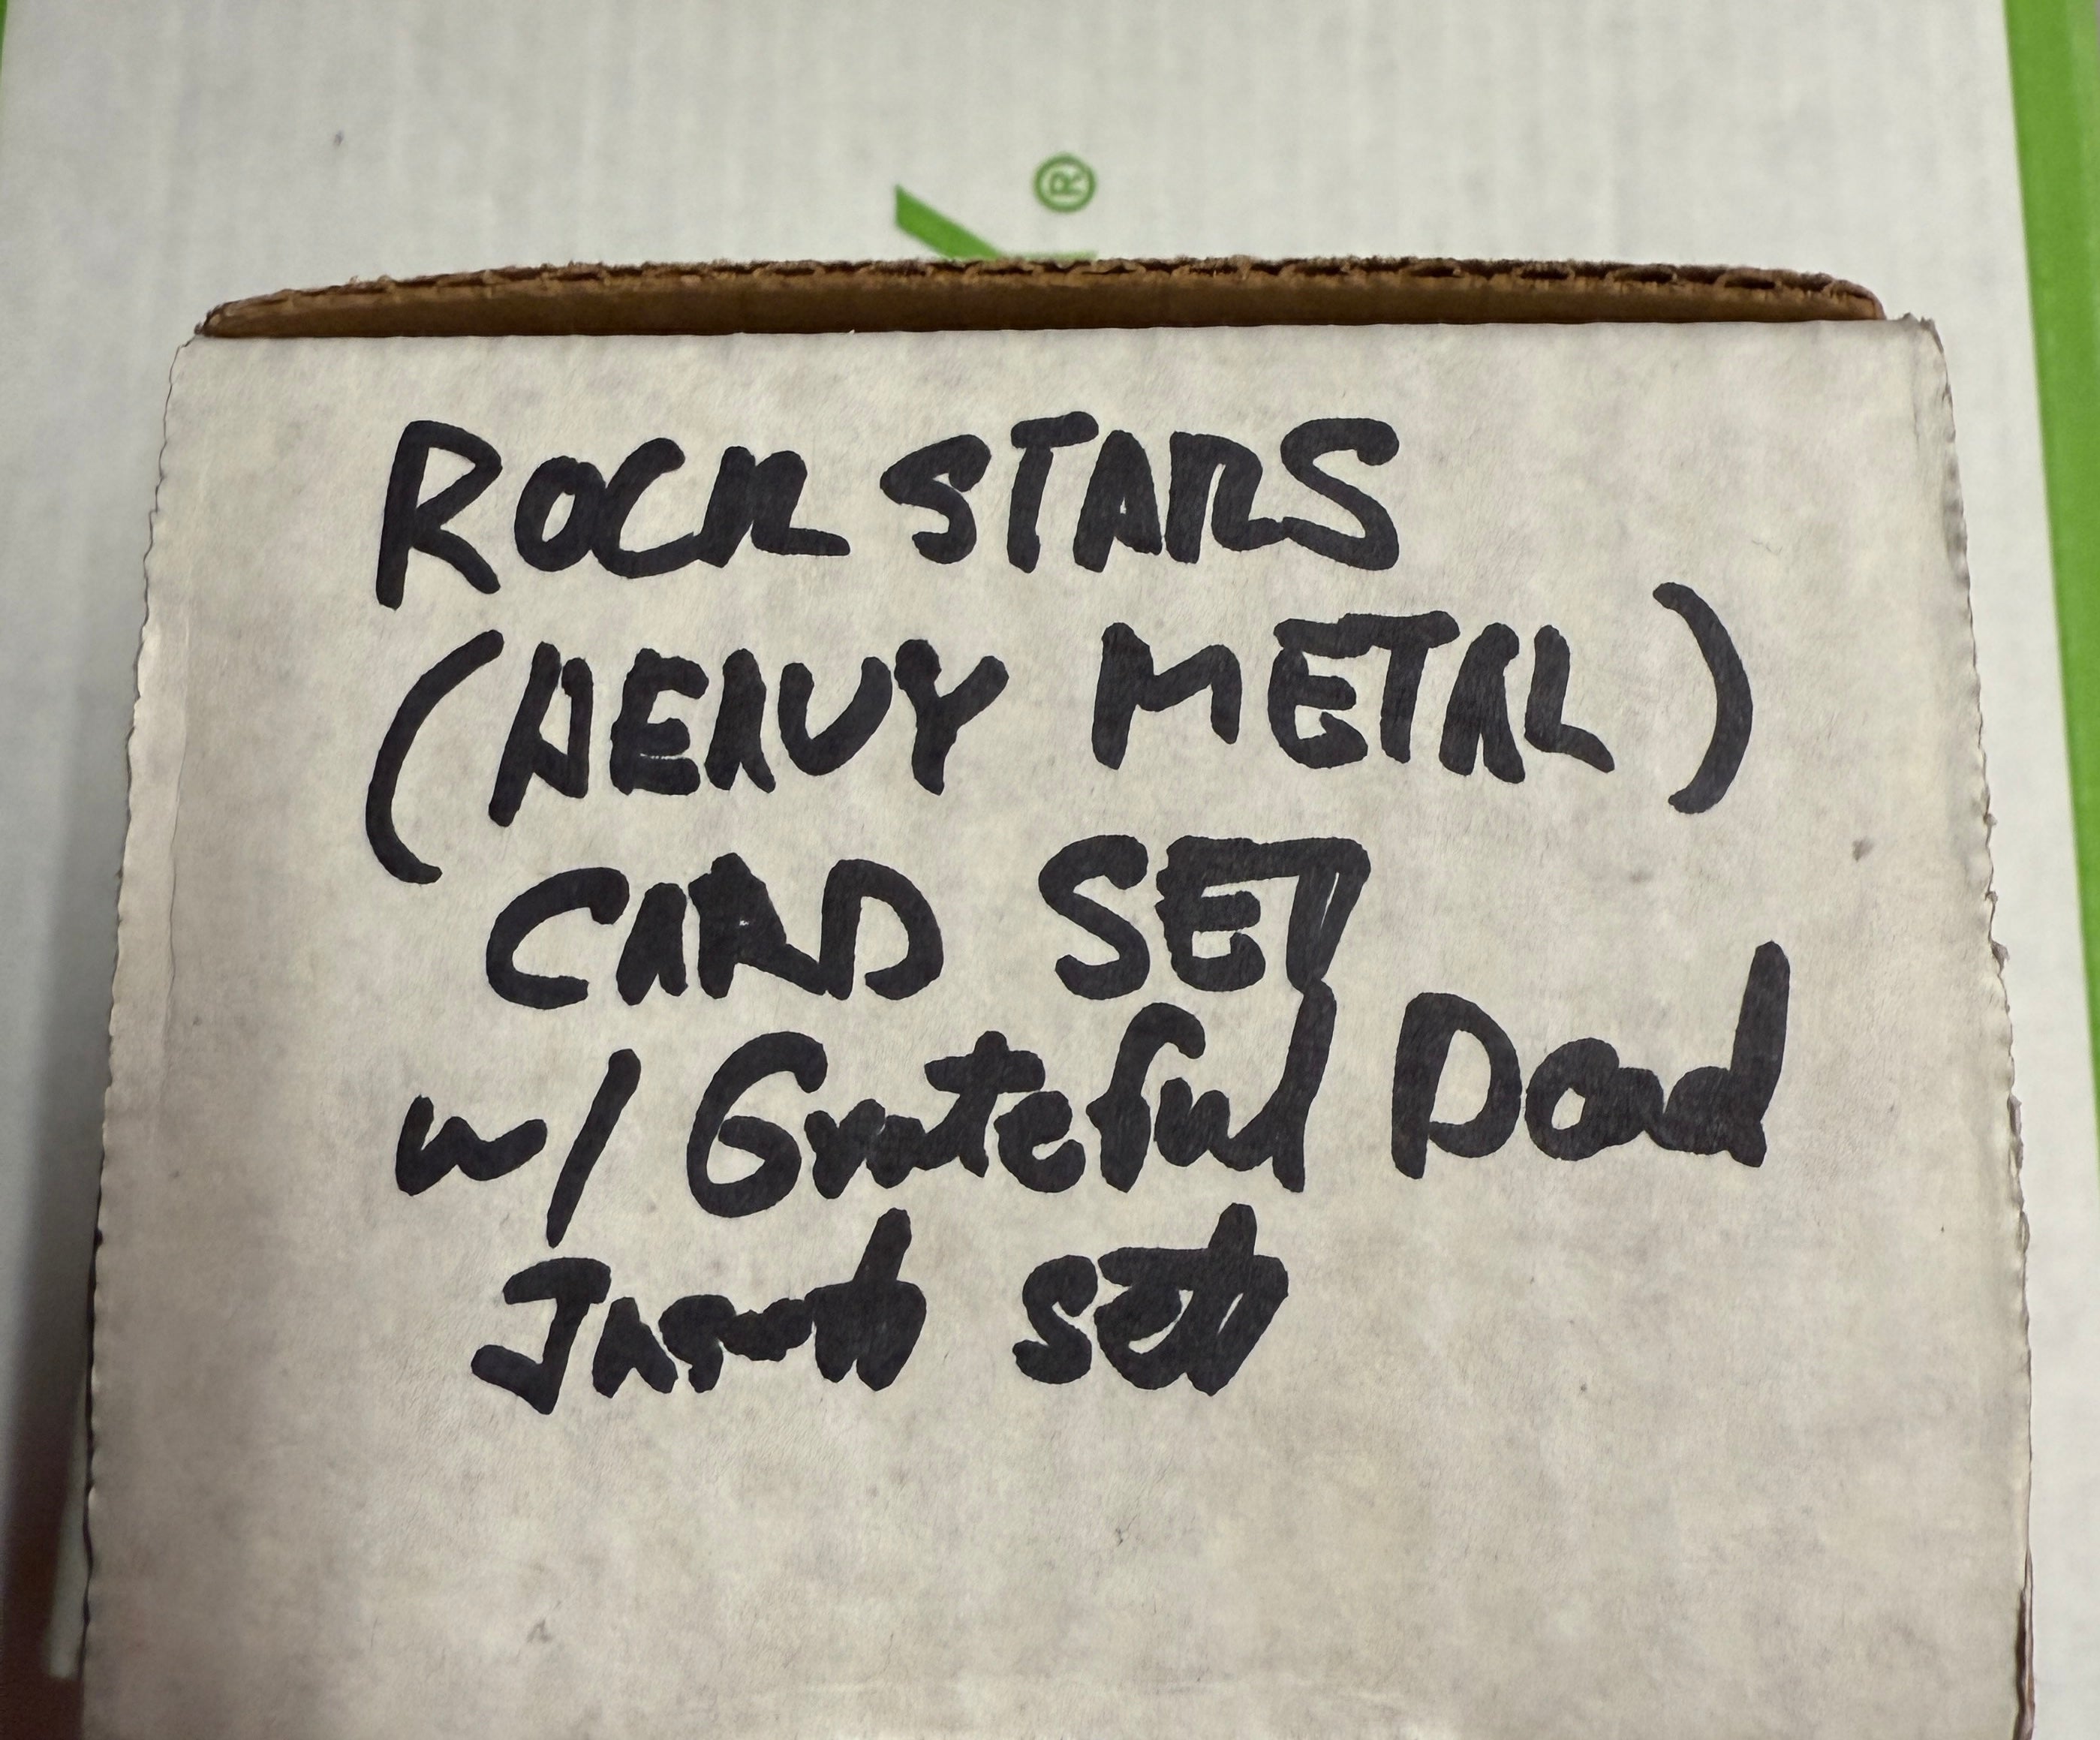 ®
ROCK STARS
(HEAVY METAL)
CARD SET
w/ Grateful Dead
set